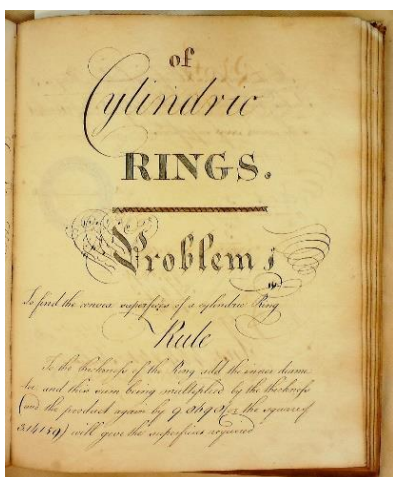 of
Cylindric
RINGS.
Problem 1
To find the convex superfices of a cylindric Ring
Rule
To the thickness of the Ring add the inner diame
ter and this sum being multiplied by the thickness
(and the product again by 9.8696 the square of
3.14159) will give the superfices required